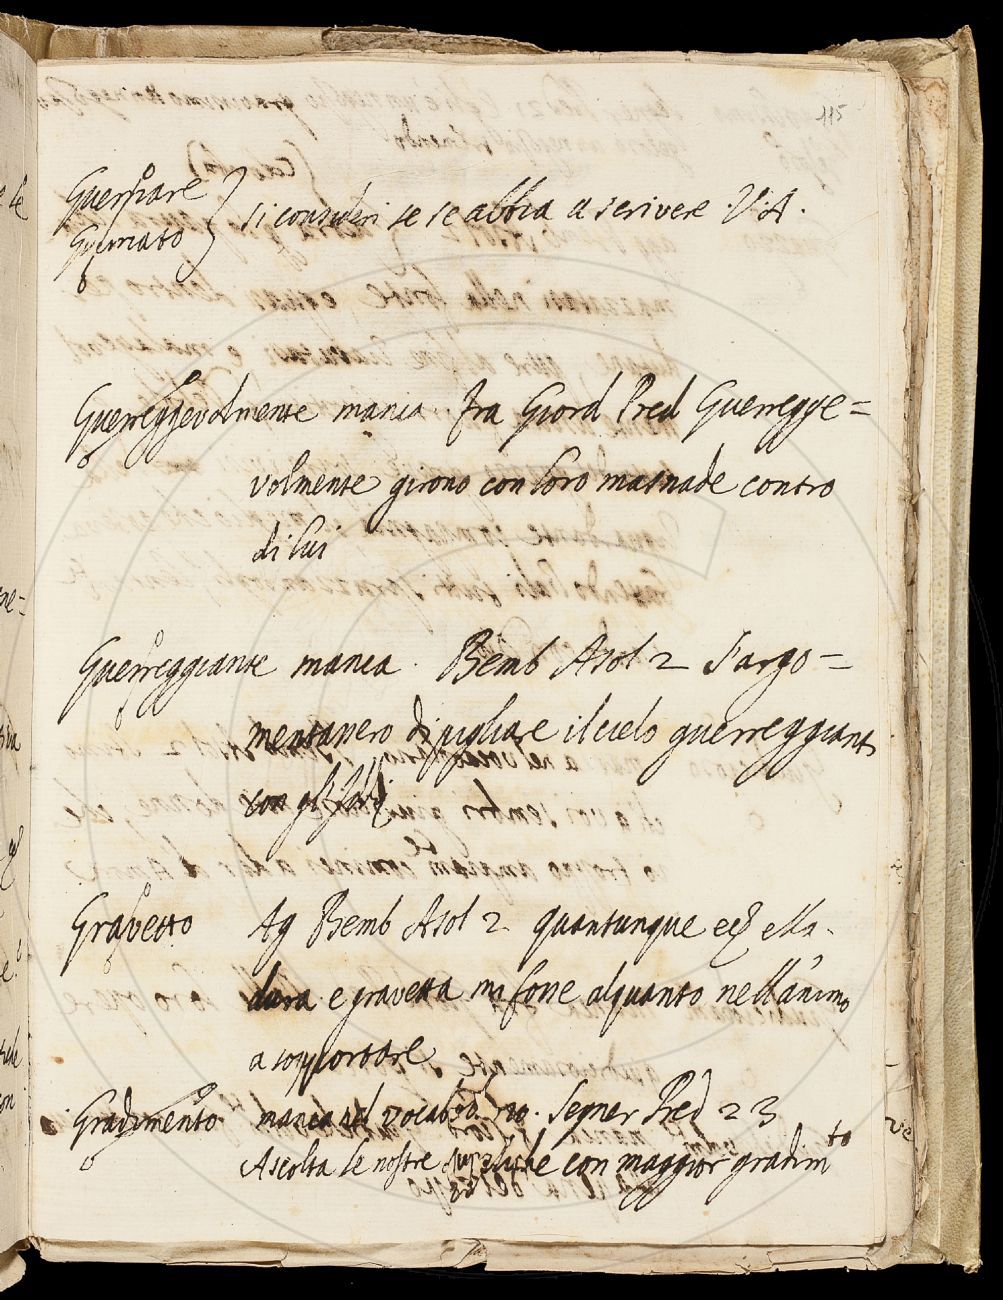 115
Guerriare
Guerriato } si consideri se se abbia a scrivere V. A.
Guerreggevolmente manca. fra Giord Pred Guerregge=
volmente girono con loro masnade contro
di lui
Guerreggiante manca. Bemb Asol 2 S'argo=
mentassero di pigliare il cielo guerreggiante
con gli
Gravetto Ag Bemb Asol 2 quantunque ella
dura e gravetta mi fosse alquanto nell'animo
a sopportare
Gradimento manca nel vocabolario. Segner Pred 23
Ascolta le nostre suppliche con maggior gradimto